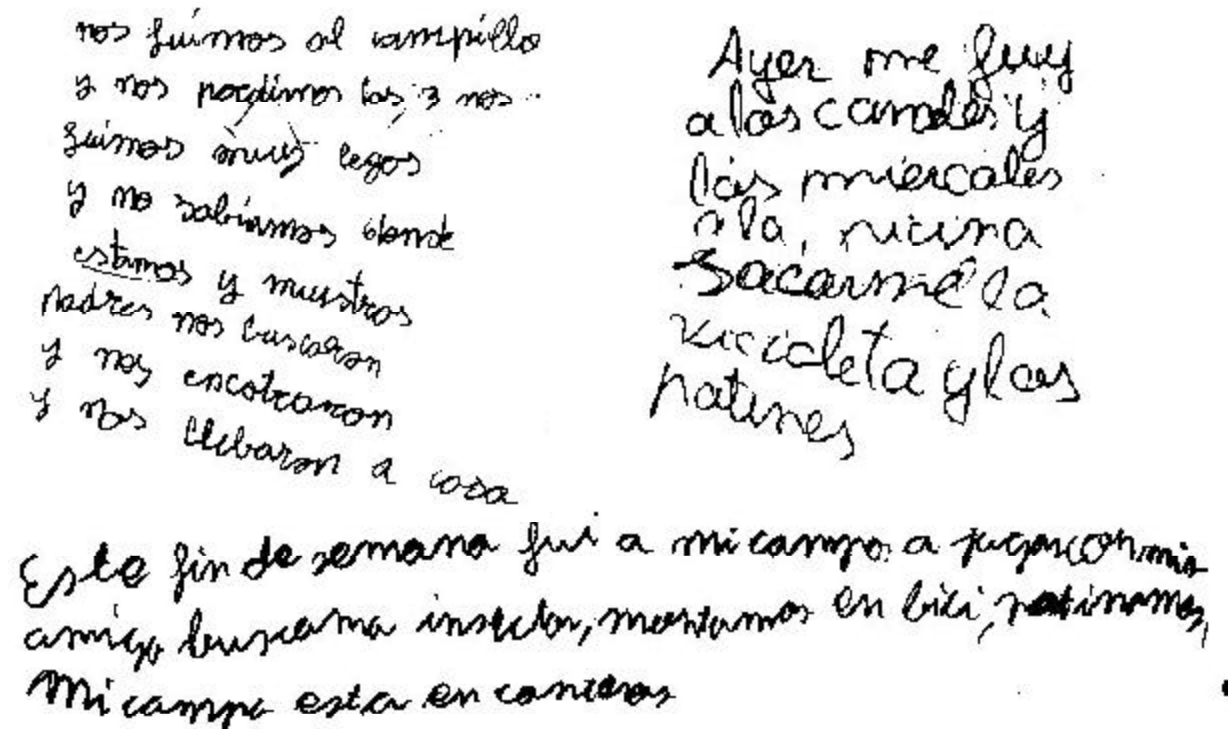 nos fuimos al campillo
y nos perdimos los 3 nos
fuimos muy legos
y no sabiamos donde
estamos y nuestros
padres nos buscaron
y nos encotraron
y nos llebaron a casa
Ayer me fuy
a los y
los miercoles
a la, picina
sacarme la
vicicleta y los
patines
Este fin de semana fui a mi campo a jugar con mis
amigo insectos, montamos en bici, patinamos,
Mi campo esta en